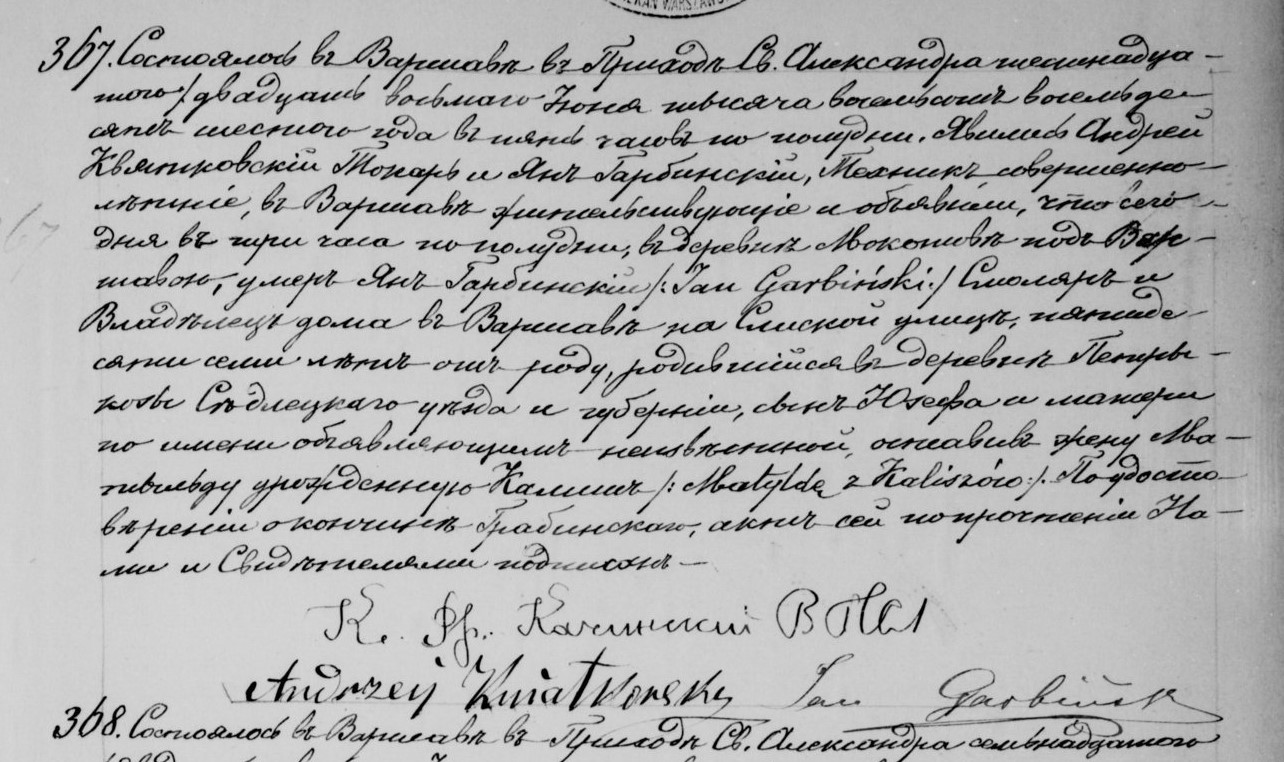 KAN WARSZAWS
367. Состоялось въ Варшавѣ въ Приходѣ Св. Александра шестнадца-
таго /двадцать восьмаго Іюня тысяча восемьсотъ восемьде-
сятъ шестаго года въ пять часовъ по полудни. Явились Андрей
Квятковскій Токарь и Янъ Гарбинскій, Техникъ, совершенно-
лѣтніе, въ Варшавѣ жительствующіе и объявили, что сего
дня въ три часа по полудни, въ деревнѣ Мокотовѣ подъ Вар-
шавою, умеръ Янъ Гарбинскій /: Jan Garbiński :/ Столяръ и
Владѣлецъ дома въ Варшавѣ на Слиской улицѣ, пятьде-
сяти семи лѣтъ отъ роду, родившійся въ деревнѣ
Сѣдлецкаго уѣзда и губерніи, сынъ Юзефа и матери
по имени объявляющимъ неизвѣстной, оставивъ жену Ма-
тильду урожденную Калишъ /: Matyldę z Kaliszów :/. По удосто-
вѣреніи о кончинѣ Грабинскаго, актъ сей по прочтеніи На-
ми и Свидѣтелями подписанъ —
К. Фр. Качинскій
Andrzey Kwiatkowsky Jan Garbiński
368. Состоялось въ Варшавѣ въ Приходѣ Св. Александра семьнадцатаго